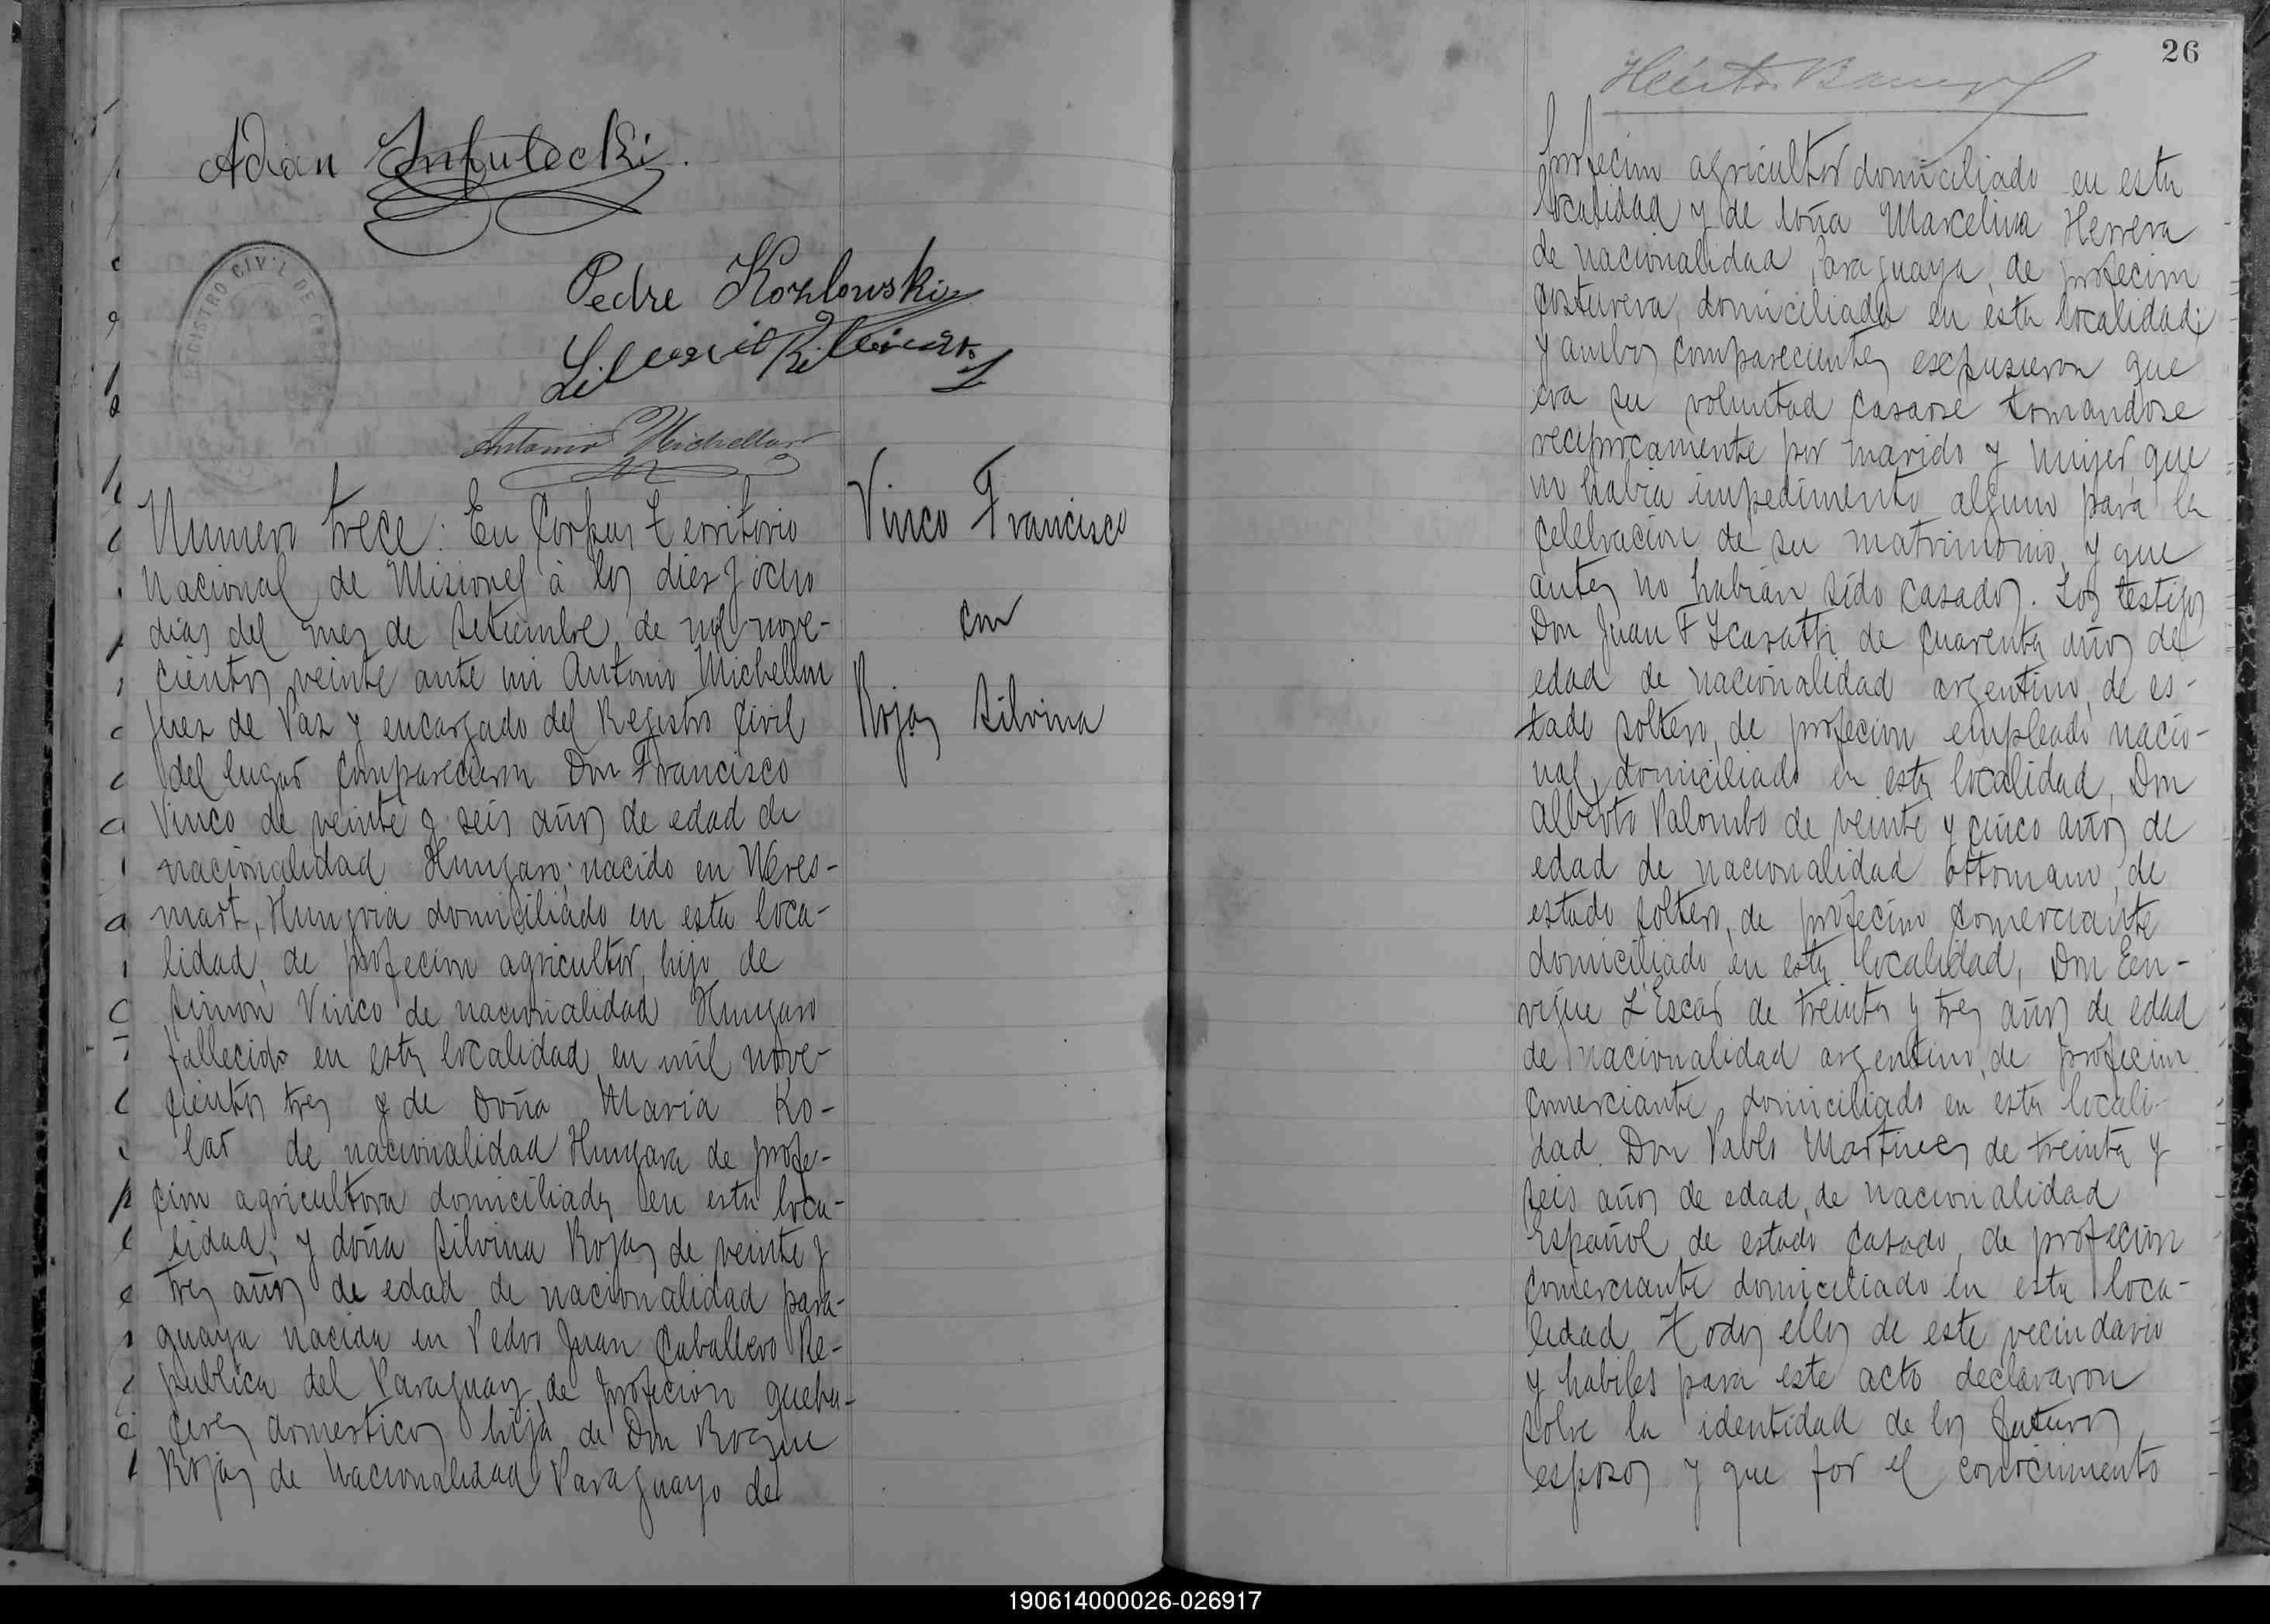 Adian
Pedro Kozlowski
REGISTRO CIVIL DE
Antonio Michellon
Numero trece: En Corpus Territorio
Nacional de Misiones à los diez y ocho
dias del mes de Setiembre de mil nove-
cientos veinte ante mi Antonio Michellon
Juez de Paz y encargado del Registro Civil
del lugar comparecieron Don Francisco
Vinco de veinte y seis años de edad de
nacionalidad Hungaro; nacido en Weres-
mart, Hungria domiciliado en esta loca-
lidad, de profecion agricultor, hijo de
Simon Vinco de nacionalidad Hungaro
fallecido en esta localidad en mil nove-
cientos tres y de Doña Maria Ko-
lar de nacionalidad Hungara de profe-
cion agricultora domiciliada en esta loca-
lidad; y doña Silvina Rojas de veinte y
tres años de edad de nacionalidad para-
guaya nacida en Pedro Juan Caballero Re-
publica del Paraguay de profecion queha-
ceres domesticos hija de Don Roque
Rojas de Nacionalidad Paraguayo de
Vinco Francisco
con
Rojas Silvina
26
profecion agricultor domiciliado en esta
localidad y de doña Marcelina Herrera
de nacionalidad Paraguaya, de profecion
costurera, domiciliada en esta localidad;
y ambos comparecientes expusieron que
era su voluntad casarse tomandose
reciprocamente por marido y mujer, que
no habia impedimento alguno para la
celebracion de su matrimonio, y que
antes no habian sido casados. Los testigos
Don Juan F de cuarenta años de
edad de nacionalidad argentino, de es-
tado soltero, de profecion empleado nacio-
nal, domiciliado en esta localidad, Don
Alberto Palombo de veinte y cinco años de
edad de nacionalidad Ottomano, de
estado soltero, de profecion comerciante
domiciliado en esta localidad, Don En-
rique L'Escar de treinta y tres años de edad
de nacionalidad argentino, de profecion
comerciante, domiciliado en esta locali-
dad. Don Pablo Martinez de treinta y
seis años de edad, de nacionalidad
Español de estado casado, de profecion
comerciante domiciliado en esta loca-
lidad Todos ellos de este vecindario
y habiles para este acto declararon
sobre la identidad de los futuros
esposos y que por el conocimiento
190614000026-026917